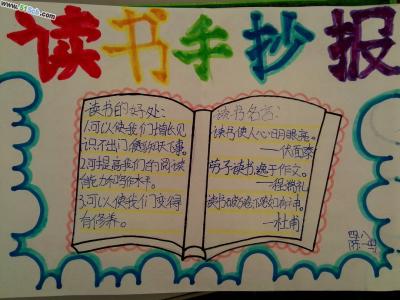 www.51Sob.com
读书手抄报
读书的好处:
1.可以使我们增长见
识不出门
天下事。
2.可提高我们的阅读
能力和写作水平。
3.可以使我们变得
有修养。
读书名言:
读书使人心明眼亮。
——伏尔泰
劳于读书,逸于作文。
——程端礼
读书破万卷,下笔如有神。
——杜甫